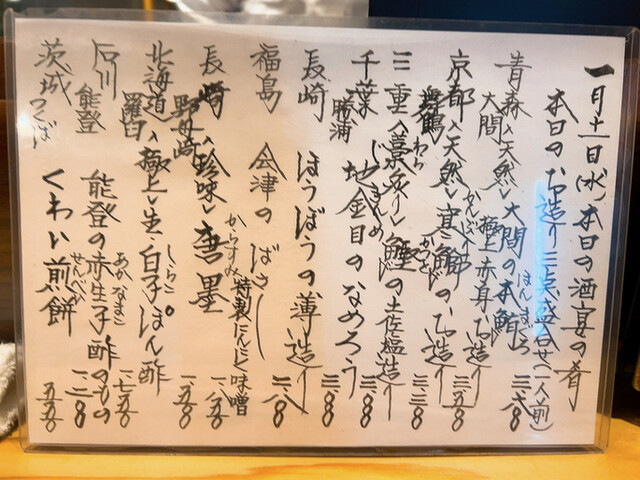 一月十一日(水)本日の酒宴の肴
本日のお造り三点盛合せ(一人前)
青森 大間 〈天然〉大間の本鮪 ほんまぐろ 極上赤身お造り
京都 舞鶴 〈天然〉寒鰤のお造り かんぶり 三五〇〇
三重 〈藁炙り〉鰹の土佐塩造り わら かつお 三二〇〇
千葉 勝浦 地金目のなめろう じきんめ 三三〇〇
長崎 ほうぼうの薄造り 二八〇〇
福島 会津のばさし 特製にんにく味噌
長崎 野母崎 〈珍味〉唐墨 からすみ
北海道 羅臼 〈極上〉生・白子ぽん酢 しらこ 一七五〇
石川 能登 能登の赤生子酢のもの あかなまこ 一二〇〇
茨城 つくば くわい煎餅 せんべい 五五〇